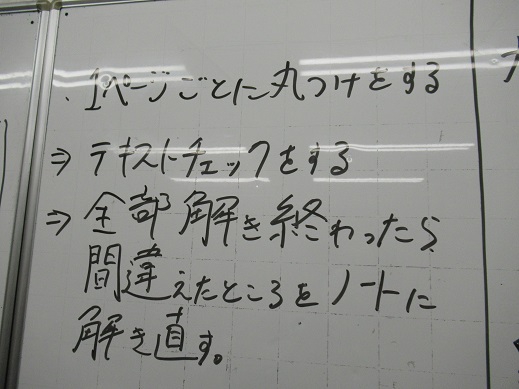 ・1ページごとに丸つけをする
⇒ テキストチェックをする
⇒ 全部解き終わったら
間違えたところをノートに
解き直す。